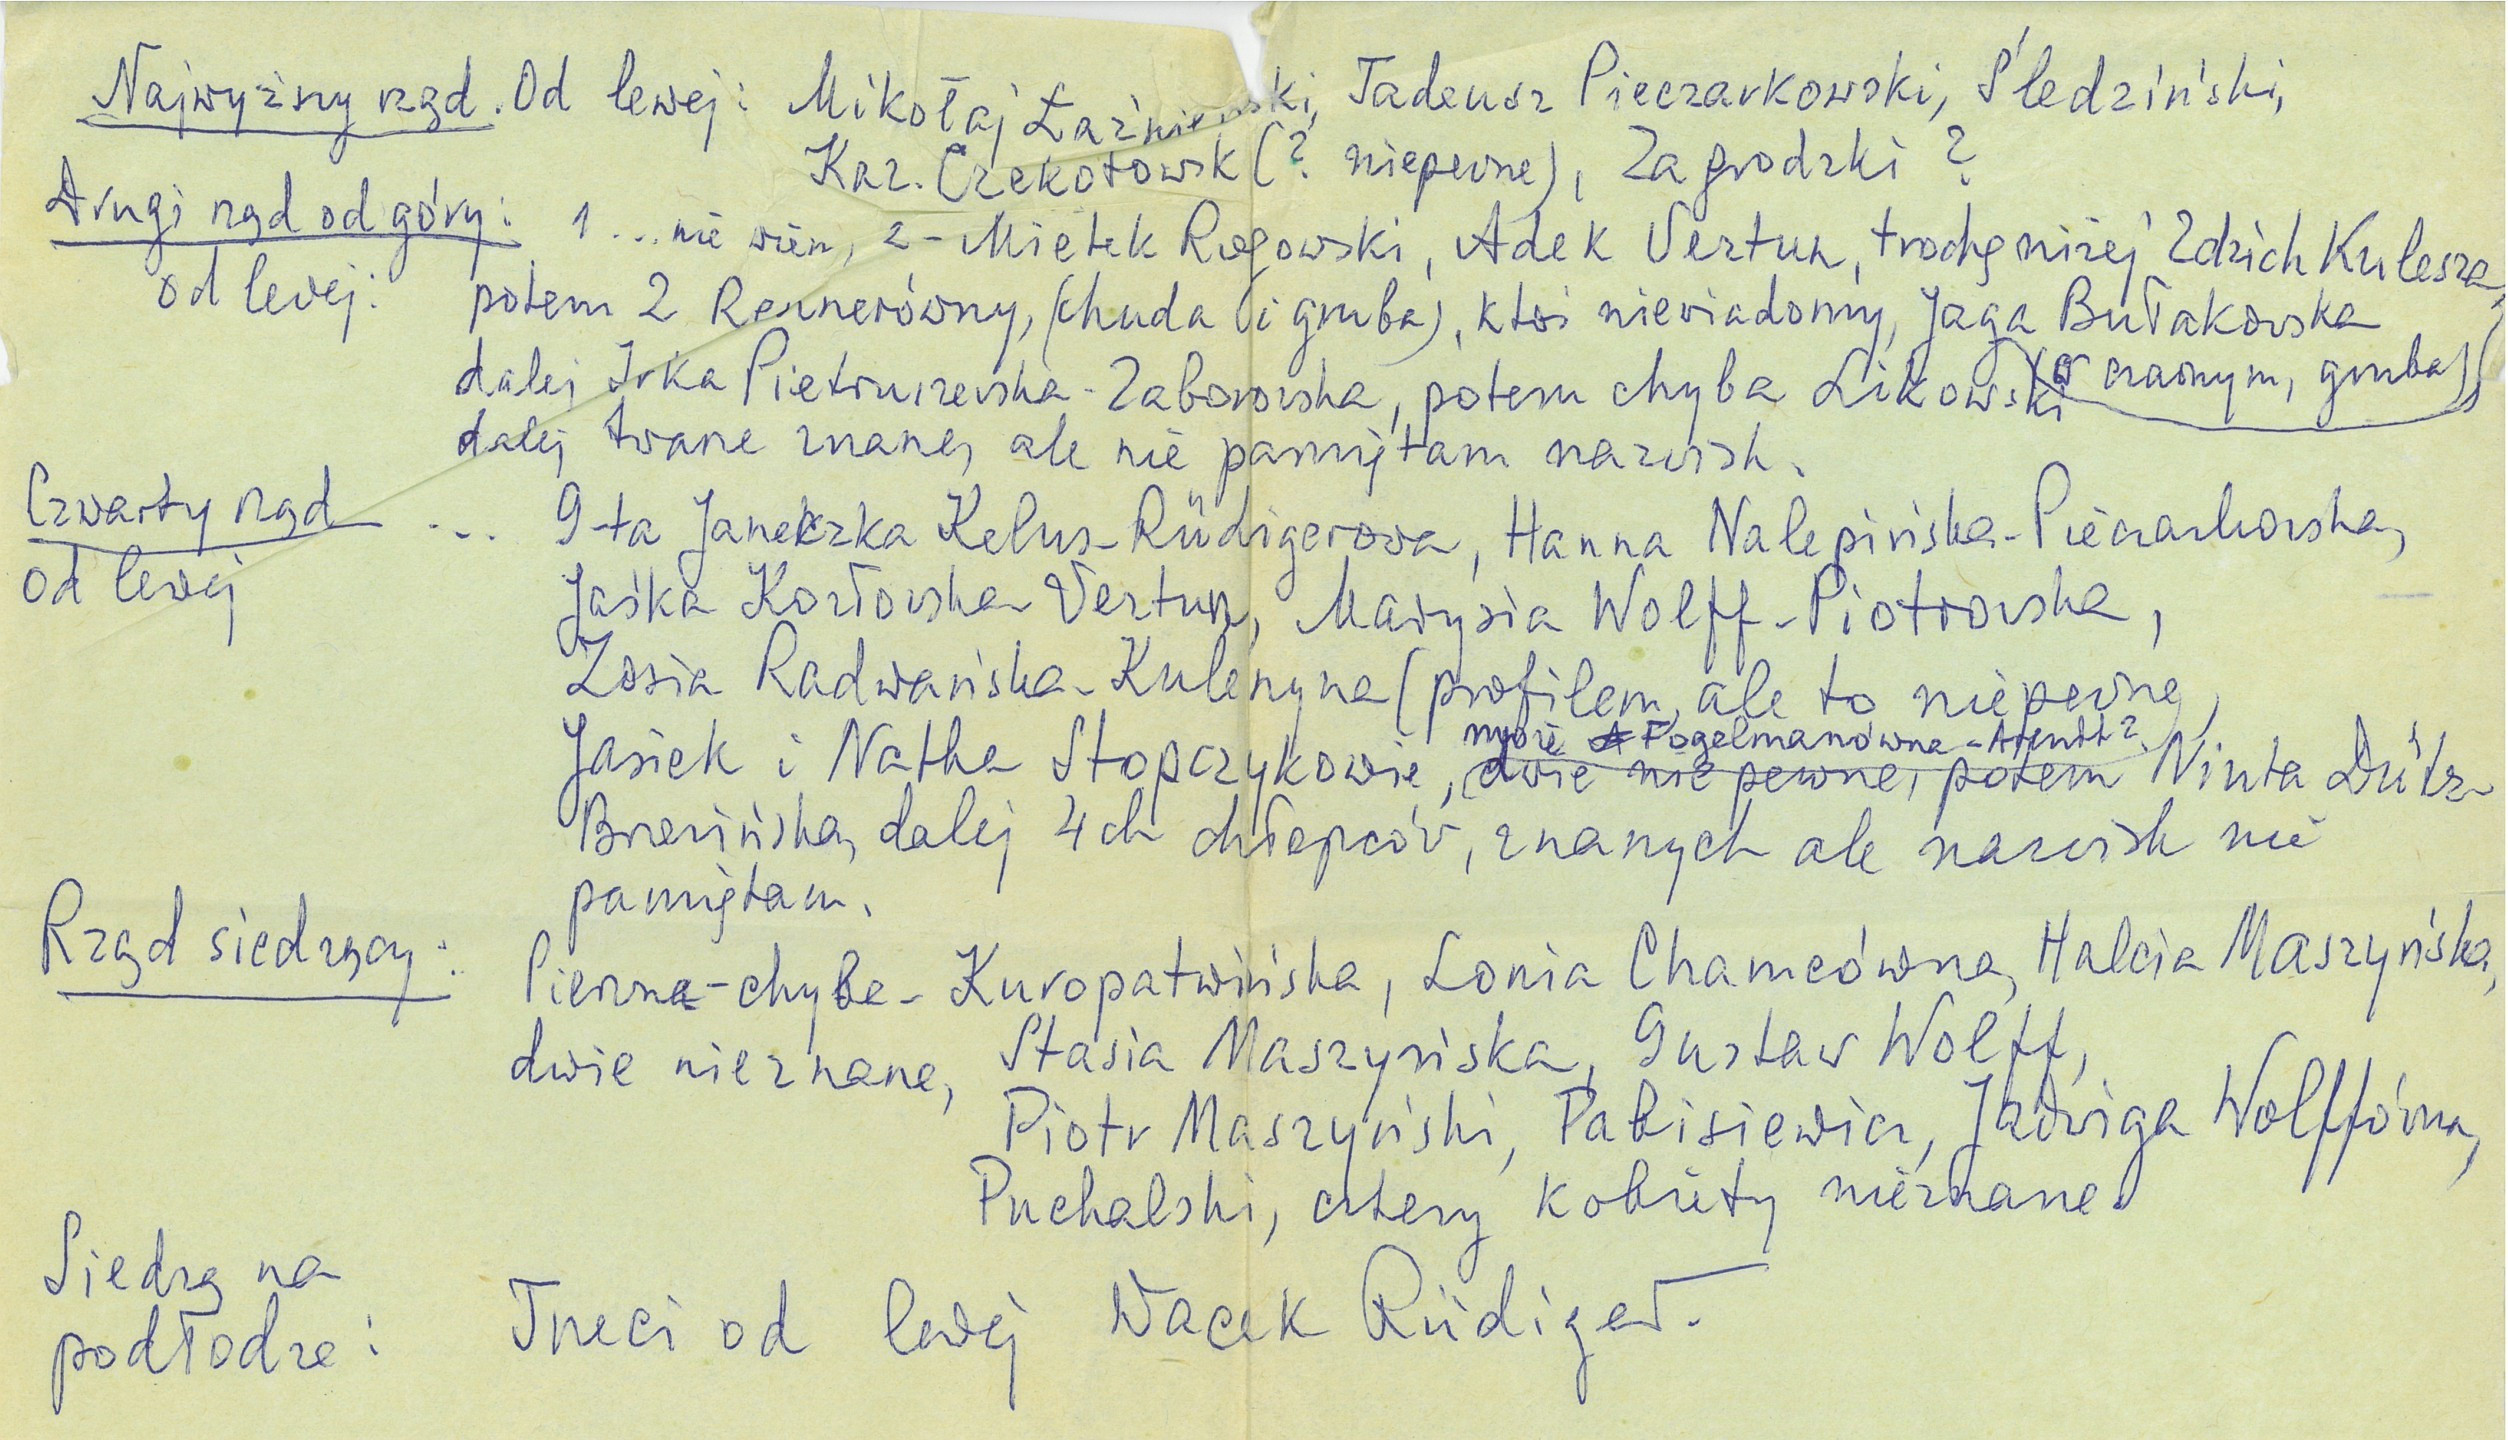 Najwyższy rząd. Od lewej: Mikołaj Łaźniewski, Tadeusz Pieczarkowski, Śledziński,
Kaz. Czekotowsk (? niepewne), Zagrodzki ?
Drugi rząd od góry: 1 ... nie wiem, 2 - Mietek Rogowski, Adek Vertun, trochę niżej Zdzich Kulesza,
od lewej: potem 2 Rennerówny, (chuda i gruba), ktoś nieviadomy, Jaga Bułakowska
dalej Irka Pietruszewska-Zaborowska, potem chyba Likowski (w czarnym, gruba)
dalej twarze znane, ale nie pamiętam nazwisk.
Czwarty rząd ... 9-ta Janeczka Kelus-Rüdigerowa, Hanna Nalepińska-Pieczarkowska,
od lewej Jaśka Kozłowska-Vertun, Marysia Wolff-Piotrowska,
Zosia Radwańska-Kuleszyna (profilem, ale to niepewne,
może Fogelmanówna-Arendt?
Jasiek i Natka Stopczykowie, (dwie niepewne, potem Niuta Dütz-
Brzezińska, dalej 4ch chłopców, znanych ale nazwisk nie
pamiętam.
Rząd siedzący: Pierwsza-chyba-Kuropatwińska, Lonia Chamcówna, Halcia Maszyńska,
dwie nieznane, Stasia Maszyńska, Gustaw Wolff,
Piotr Maszyński, Pabisiewicz, Jadwiga Wolffówna,
Puchalski, cztery kobiety nieznane.
Siedzą na
podłodze: Trzeci od lewej Wacek Rüdiger.